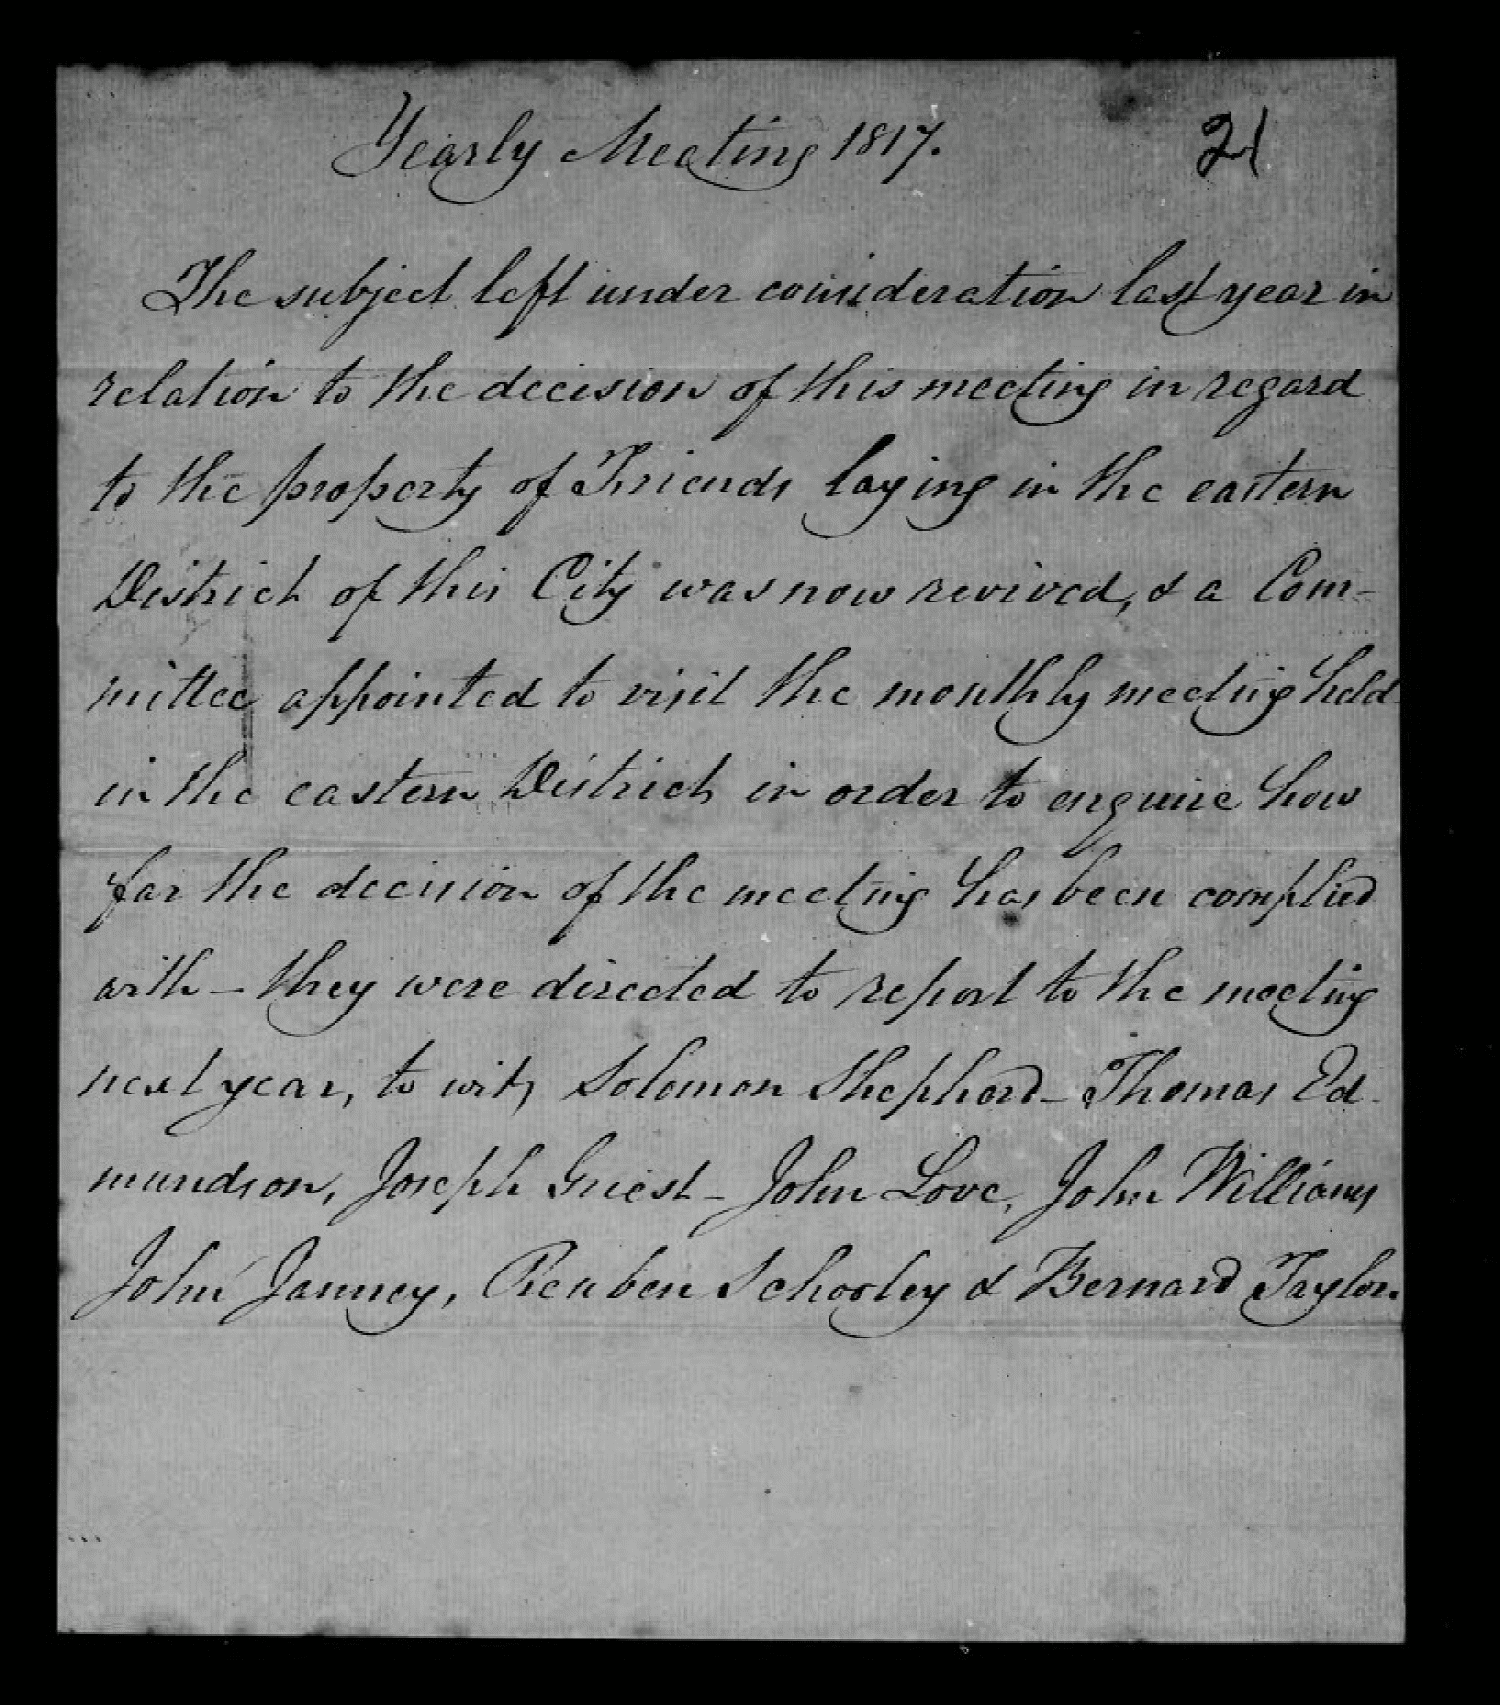 Yearly Meeting 1817.
21
The subject left under consideration last year in
relation to the decision of this meeting in regard
to the property of Friends laying in the eastern
District of this City was now revived, & a Com-
mittee appointed to visit the monthly meeting held
in the eastern District in order to enquire how
far the decision of the meeting has been complied
with - they were directed to report to the meeting
next year, to wit, Solomon Shepherd - Thomas Ed-
mundson, Joseph Guest - John Love, John Williams
John Janney, Reuben Schooley & Bernard Taylor.